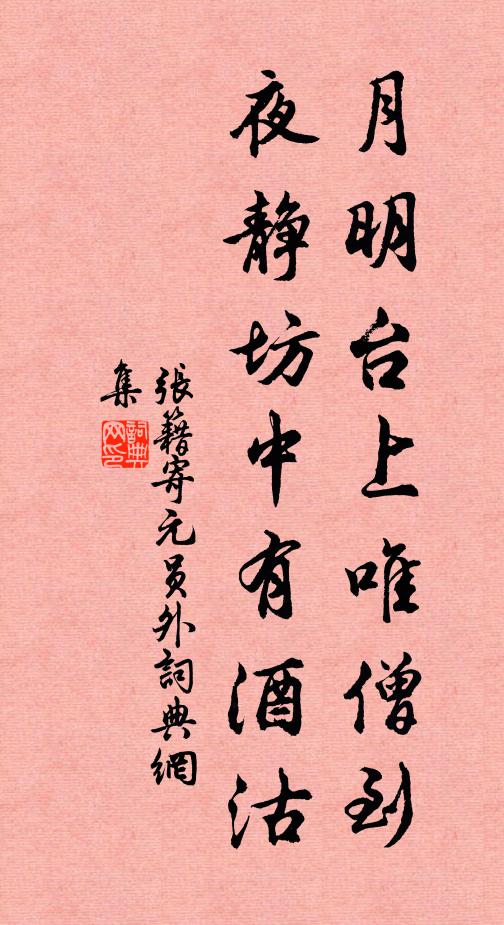 月明台上唯僧到
夜静坊中有酒沽
張籍寄元员外詞典網
集
詞典网印